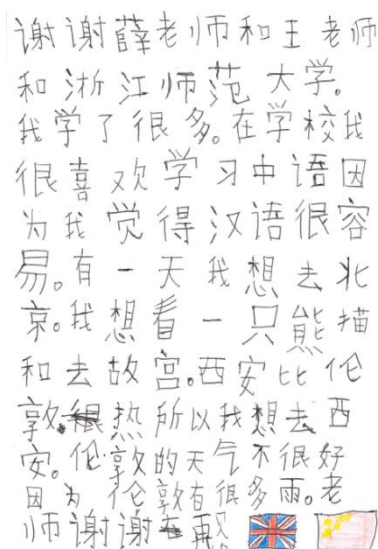 谢谢薛老师和王老师
和浙江师范大学。
我学了很多。在学校我
很喜欢学习中语因
为我觉得汉语很容
易。有一天我想去北
京。我想看一只熊描
和去故宫。西安比伦
敦热所以我想去西
安。伦敦的天气不很好
因为伦敦有很多雨。老
师谢谢再见